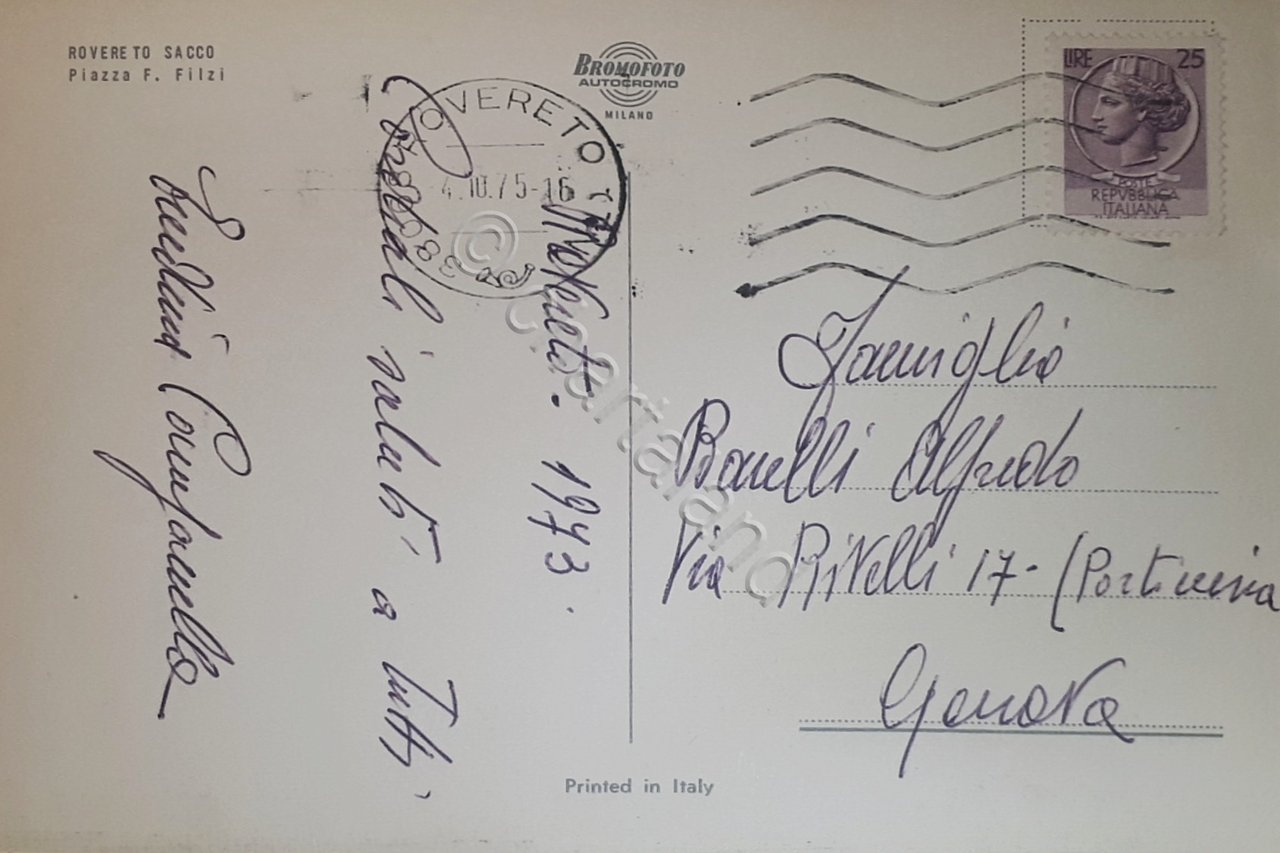 ROVERETO SACCO
Piazza F. Filzi
BROMOFOTO
AUTOCROMO
MILANO
LIRE 25
POSTE
REPVBBLICA
ITALIANA
ROVERETO
4.10.75-16
38068
© cartaland
Rovereto. 1973.
Cordiali saluti a Tutti,
Famiglia
Borelli Alfredo
Via Rivelli 17- (Porticina
Genova
Printed in Italy